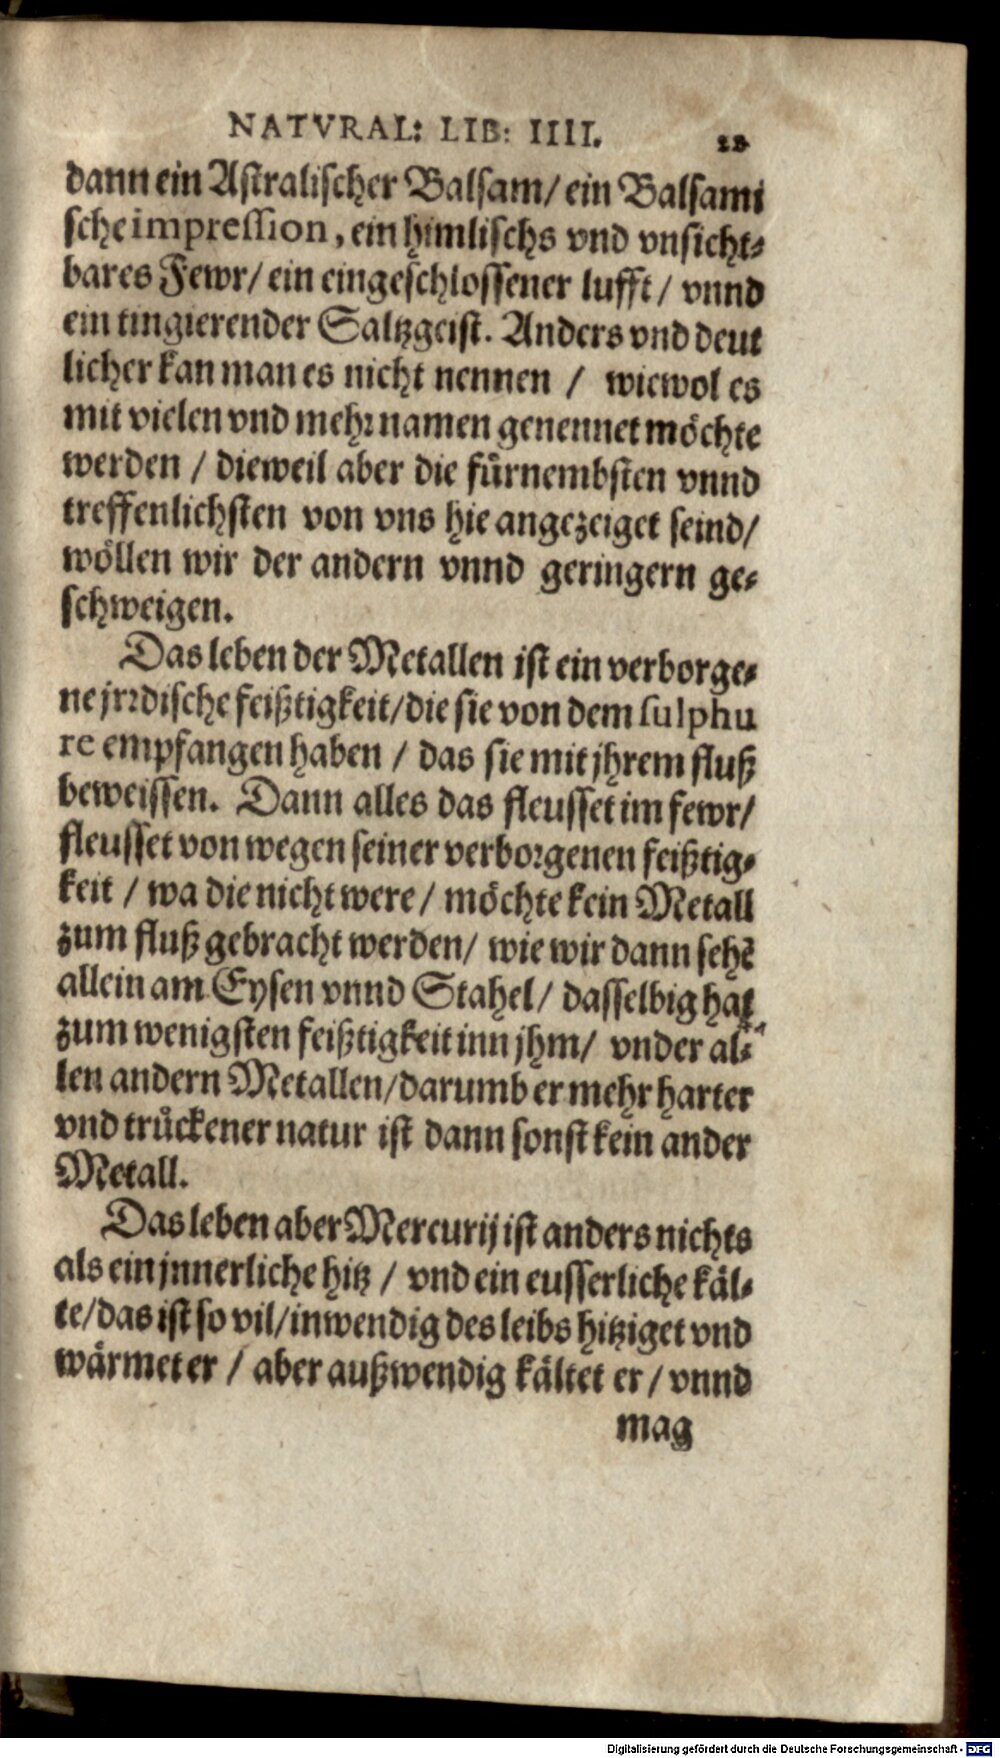 NATVRAL: LIB: IIII. 22
dann ein Astralischer Balsam/ ein Balsami
sche impression, ein himlischs vnd vnsicht⸗
bares Fewr/ ein eingeschlossener lufft/ vnnd
ein tingierender Saltzgeist. Anders vnd deut
licher kan man es nicht nennen / wiewol es
mit vielen vnd mehr namen genennet möchte
werden / dieweil aber die fürnembsten vnnd
treffenlichsten von vns hie angezeiget seind/
wöllen wir der andern vnnd geringern ge⸗
schweigen.
Das leben der Metallen ist ein verborge⸗
ne jrrdische feißtigkeit/die sie von dem sulphu
re empfangen haben / das sie mit jhrem fluß
beweissen. Dann alles das fleusset im fewr/
fleusset von wegen seiner verborgenen feißtig⸗
keit / wa die nicht were/ möchte kein Metall
zum fluß gebracht werden/ wie wir dann sehẽ
allein am Eysen vnnd Stahel/ dasselbig hat
zum wenigsten feißtigkeit inn jhm/ vnder al⸗
len andern Metallen/darumb er mehr harter
vnd trückener natur ist dann sonst kein ander
Metall.
Das leben aber Mercurij ist anders nichts
als ein jnnerliche hitz / vnd ein eusserliche käl⸗
te/das ist so vil/inwendig des leibs hitziget vnd
wärmet er / aber außwendig kältet er/ vnnd
mag
Digitalisierung gefördert durch die Deutsche Forschungsgemeinschaft - DFG